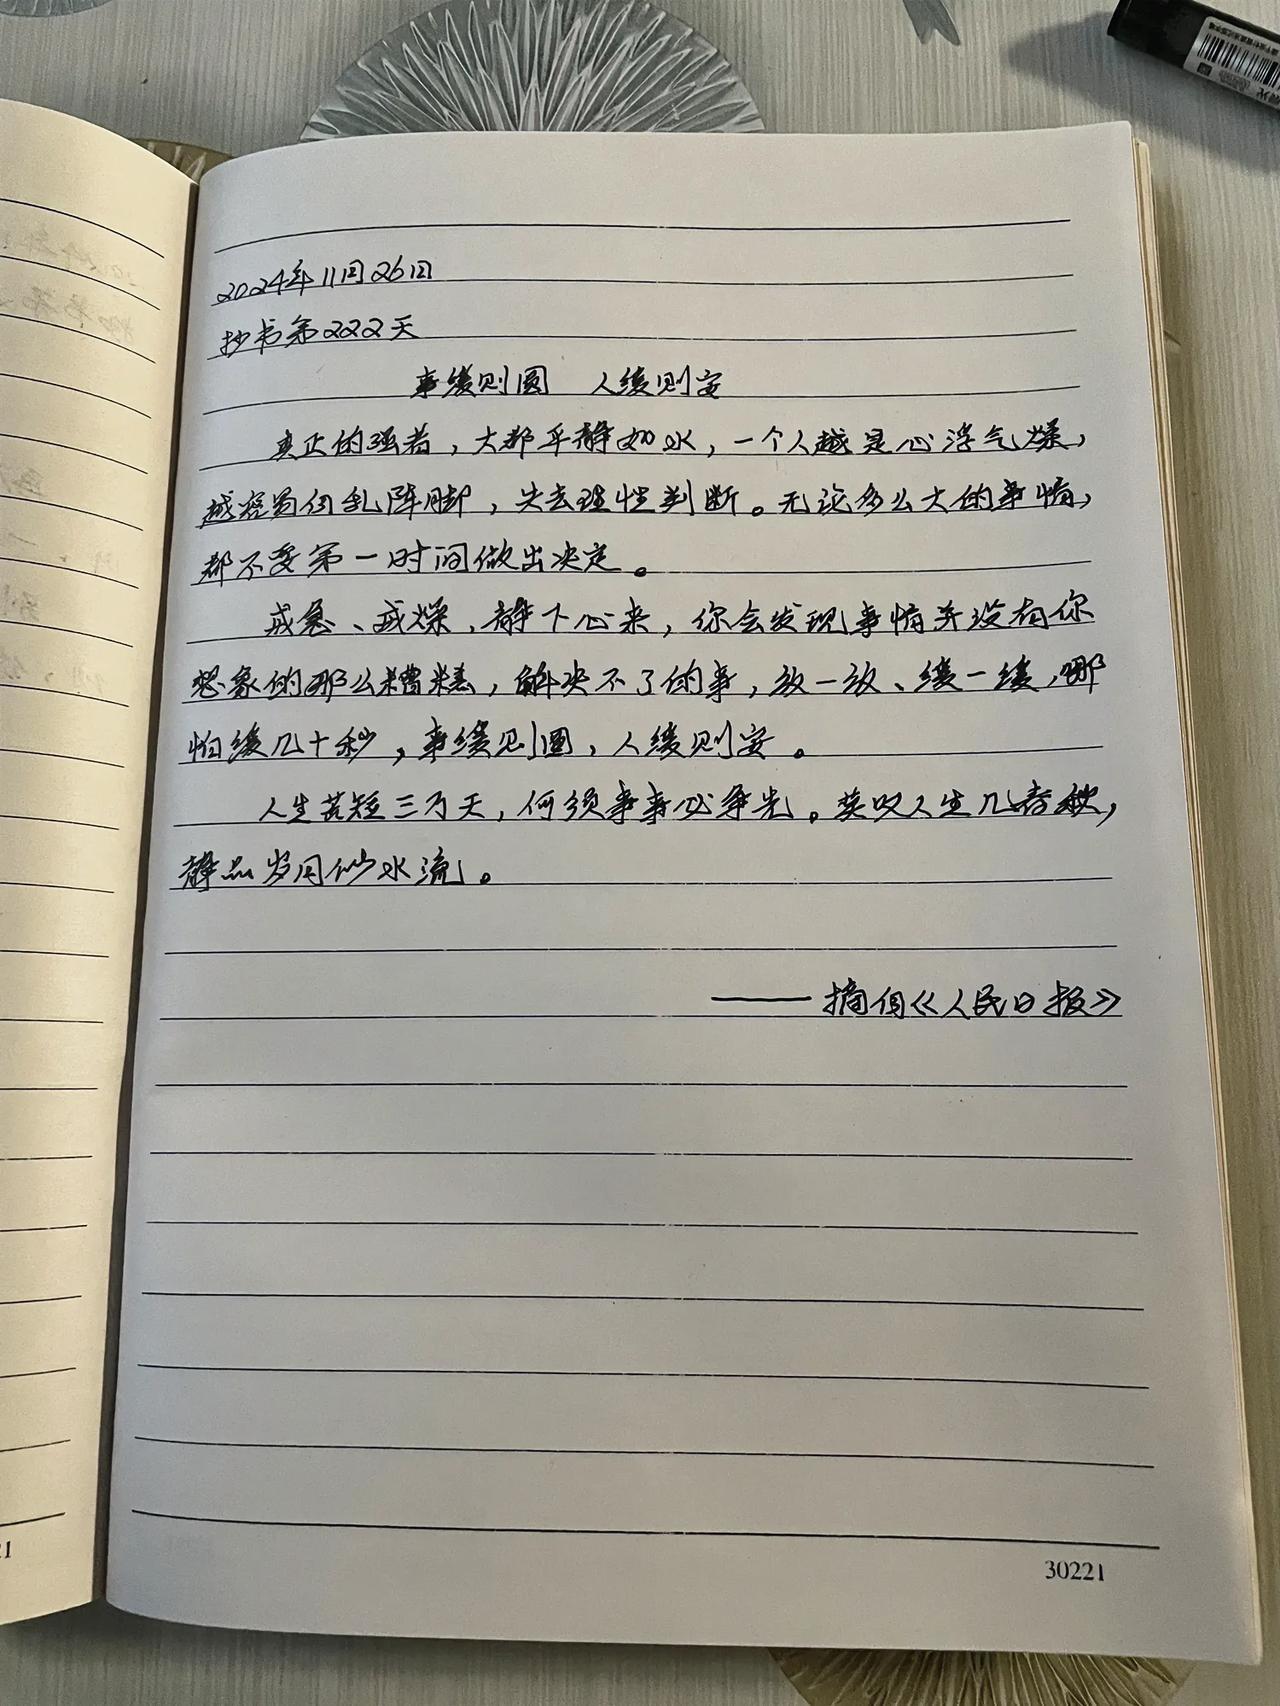 2024年11月26日
抄书第222天
事缓则圆 人缓则安
真正的强者，大都平静如水，一个人越是心浮气燥，
越容易自乱阵脚，失去理性判断。无论多么大的事情，
都不要第一时间做出决定。
戒急、戒燥，静下心来，你会发现事情并没有你
想象的那么糟糕，解决不了的事，放一放、缓一缓，哪
怕缓几十秒，事缓则圆，人缓则安。
人生苦短三万天，何须事事必争先。莫叹人生几春秋，
静品岁月似水流。
——摘自《人民日报》
30221